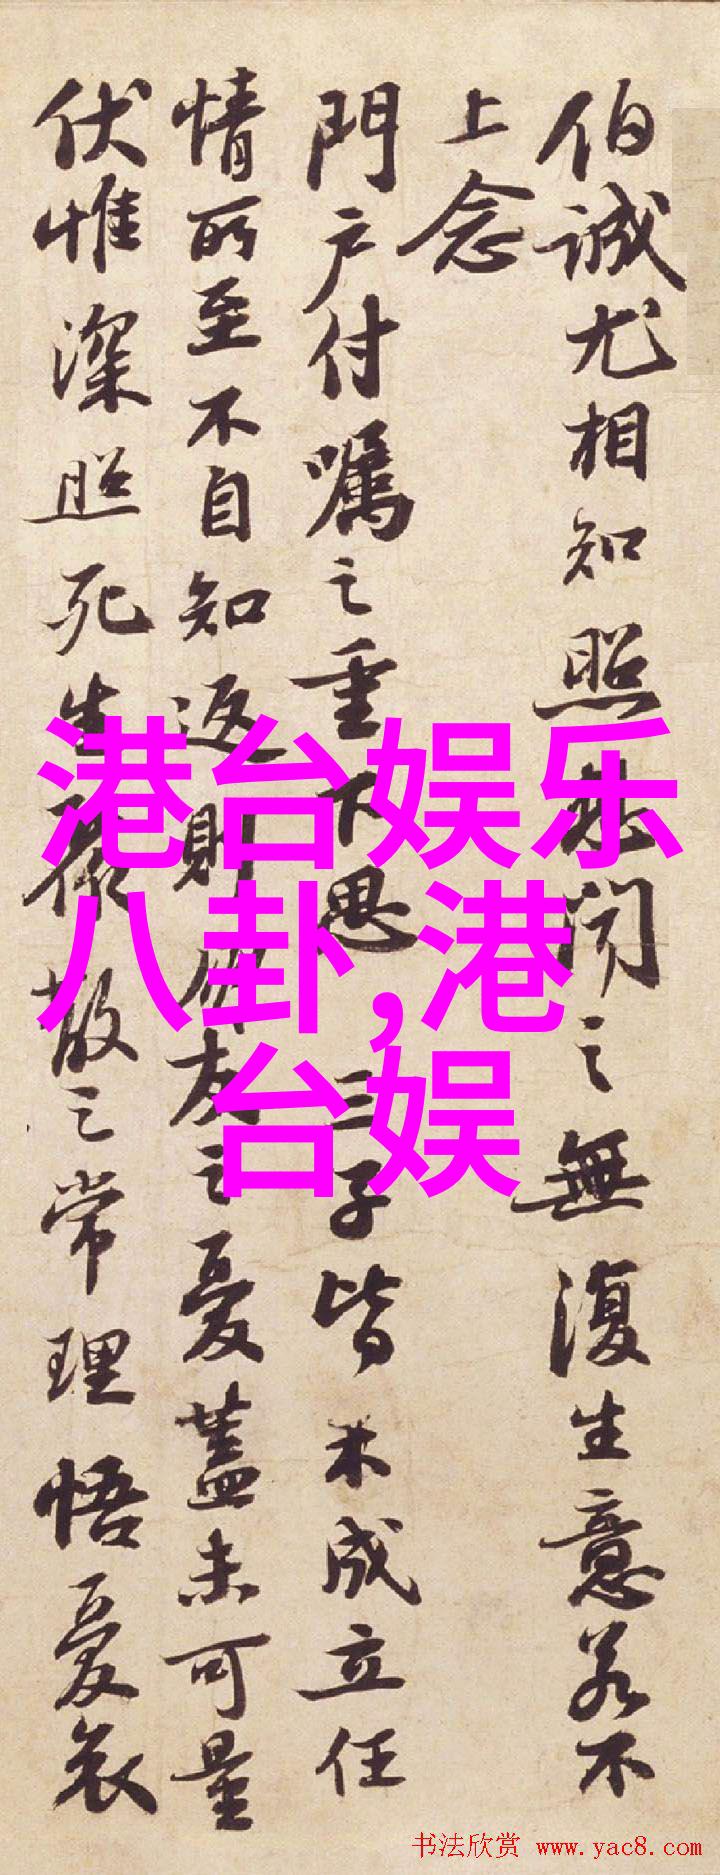 伯誠尤相知照非聞之無復生意若不
上念
門户付囑之重下思三子皆未成立任
情所至不自知返則朋友之憂蓋未可量
伏惟深照死生聚散之常理悟憂哀
港台娱乐
八卦,港
台娱
书法欣赏 www.yac8.com